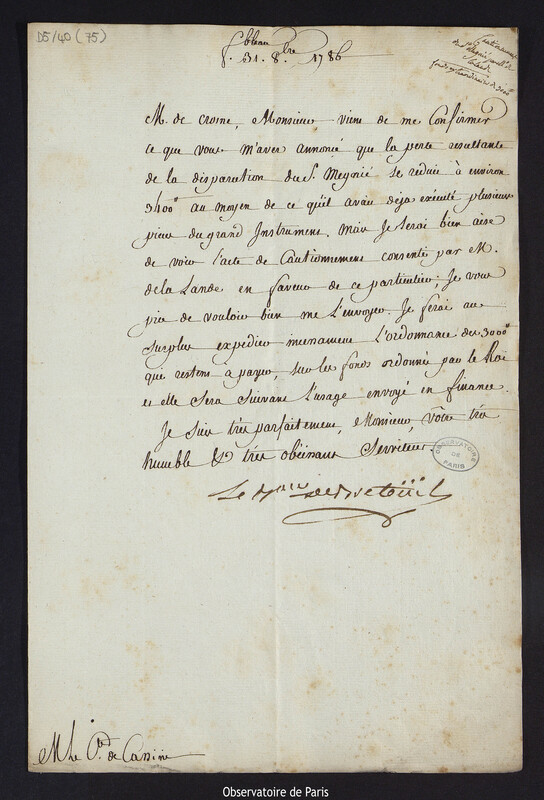 D5/40 (75)
fbleau
f. 31. 8.bre 1786
Cautionnement
fonds extraordinaire de 3000
M. de crosne, Monsieur vient de me Confirmer
ce que vous m'aver annoncé que la perte resultante
de la disparution du S. Megnié se reduit à environ
3400 au moyen de ce qu'il avait deja executé plusieurs
pieces du grand Instrument. Mais Je Serai bien aise
de voir l'acte de Cautionnement consenti par M.
dela Lande en faveur de ce particulier; Je vous
prie de vouloir bien me L'envoyer. Je ferai au
Surplus expedier incessament L'ordonnance des 3000
qui restent a payer, sur les fonds ordonnés par le Roi
et elle Sera Suivant L'usage envoyé en finance.
Je Suis très parfaitement, Monsieur, vôtre très
humble & très obéissant Serviteur.
OBSERVATOIRE DE PARIS
Le Bon de Bretoüil
M Le Cte de Cassini
Observatoire de Paris